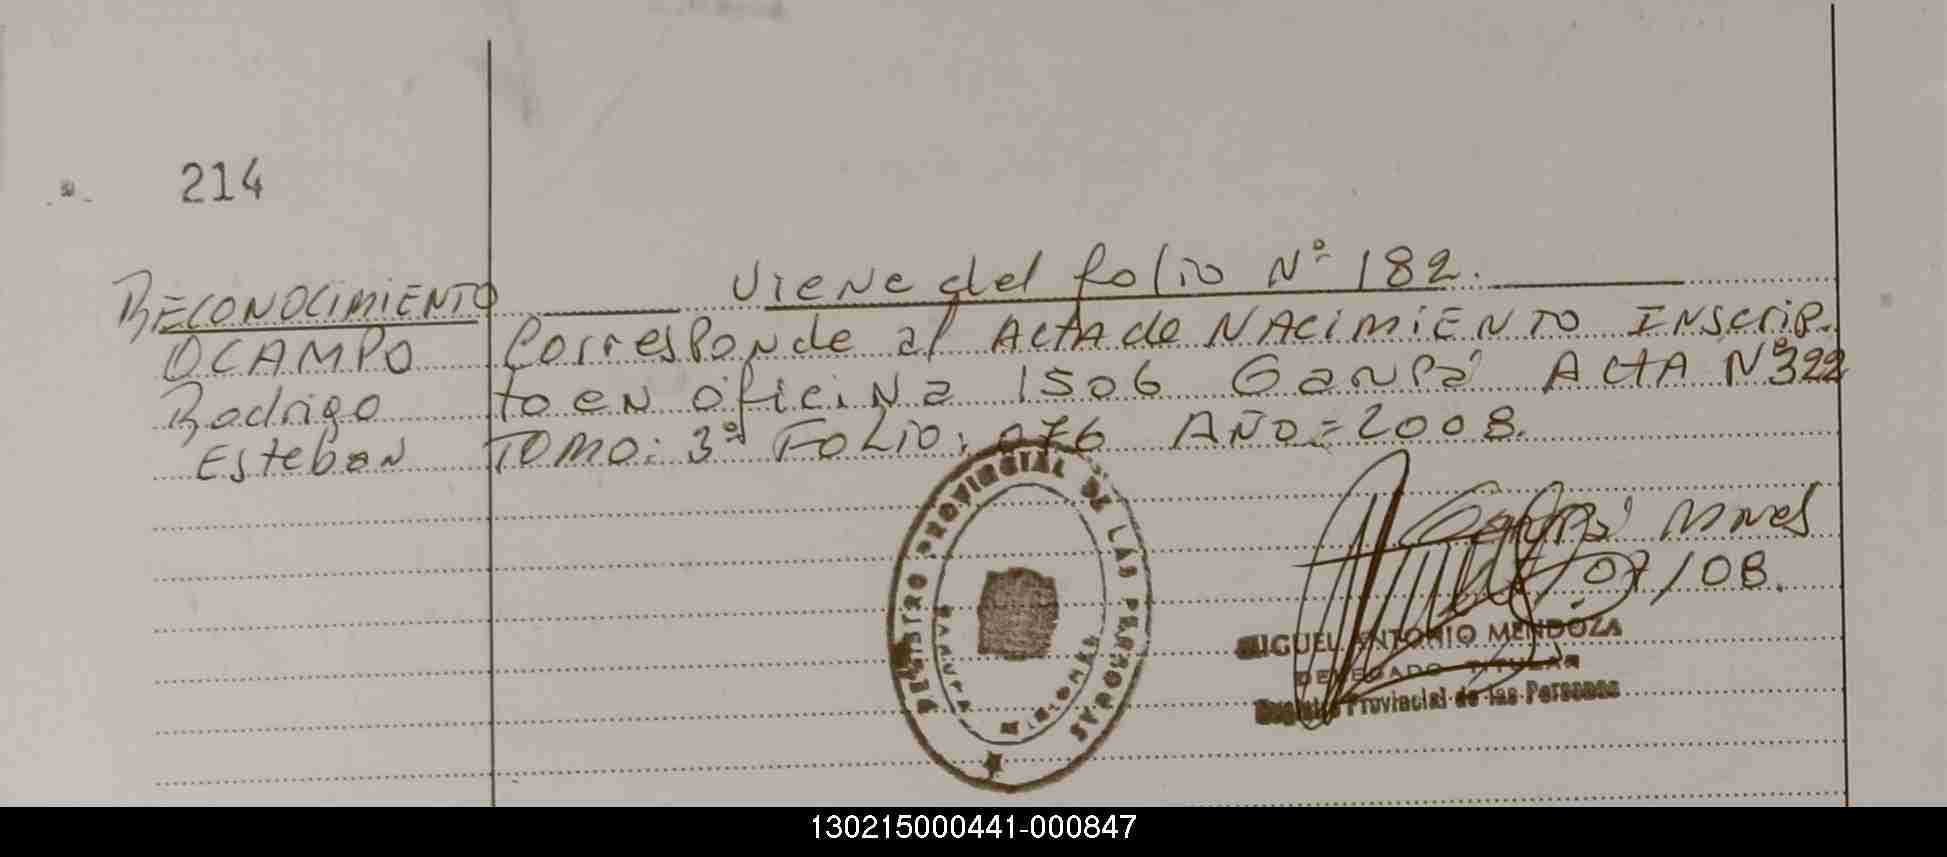 214
Viene del folio Nº 182.
RECONOCIMIENTO
OCAMPO
Rodrigo
Esteban
Corresponde al ActA de NACIMIENTO INScrip-
to en oficina 1506 Ganpá ActA Nº 322
TOMO: 3º FOLIO: 076 AÑO = 2008.
REGISTRO PROVINCIAL DE LAS PERSONAS
MISIONES
Ganpá Mnes
07/08.
MIGUEL ANTONIO MENDOZA
DELEGADO TITULAR
Registro Provincial de las Personas
130215000441-000847